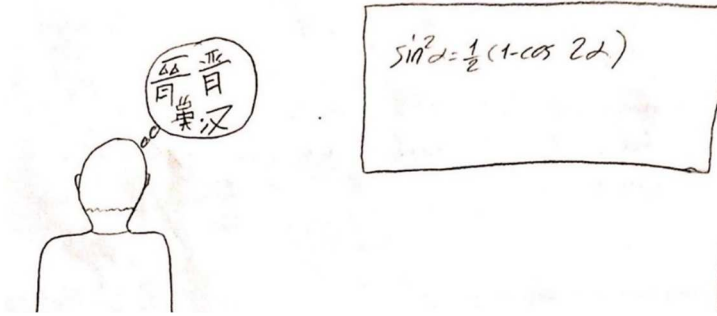 晉 晋
汉
sin²α=½(1-cos 2α)